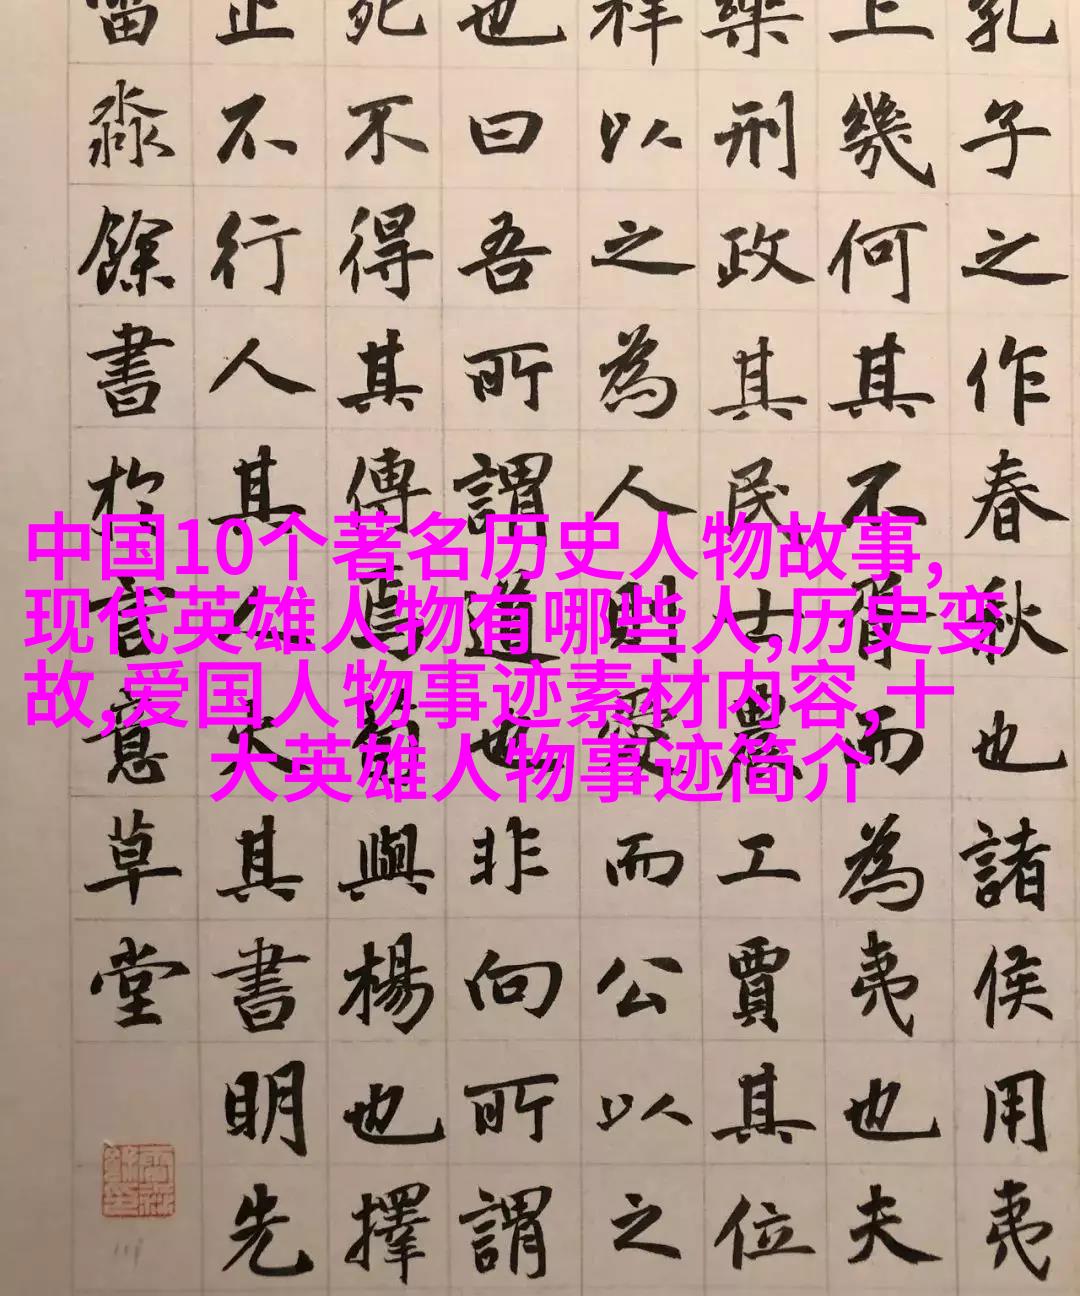 中国10个著名历史人物故事,
现代英雄人物有哪些人,历史变
故,爱国人物事迹素材内容,十
大英雄人物事迹简介
孔子之作春秋也諸侯用夷
上幾何其不胥而為夷也夫
樂刑政其民士農工賈其位
祥以之為人則愛而公以之
也曰吾所謂道也非向所謂
死不得其傳焉荀與楊也擇
止不行人其人火其書明先
淼餘書於意草堂